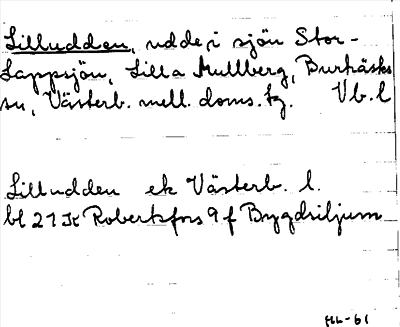 Lilludden, udde i sjön Stor-
Lappsjön, Lilla Mullberg, Burträsks
sn, Västerb. mell. doms. tg. Vb. l
Lilludden ek Västerb. l.
bl 21 K Robertsfors 9 f Bygdsiljum
HL-61